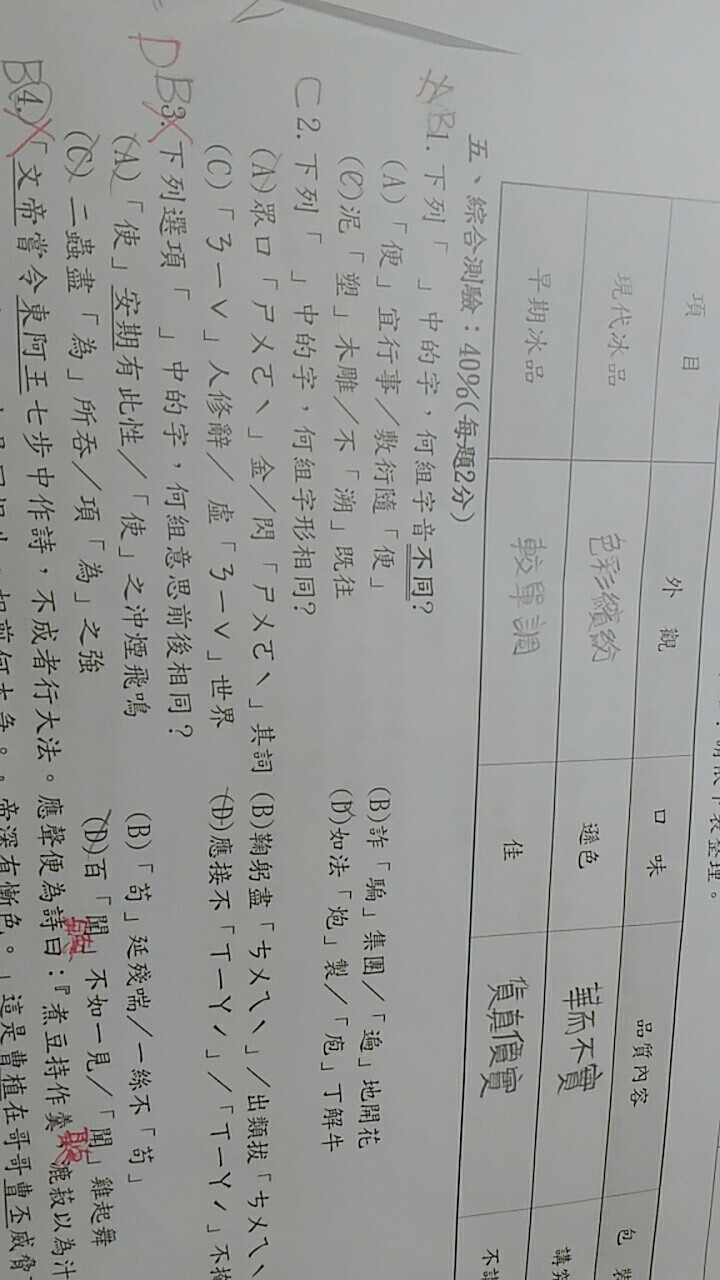 明依下表整理。
項目 外觀 口味 品質內容 包
現代冰品 色彩繽紛 遜色 華而不實 講究
早期冰品 較單調 佳 貨真價實 不講
五、綜合測驗:40%(每題2分)
AB1. 下列「 」中的字,何組字音不同?
(A)「便」宜行事/敷衍隨「便」 (B)詐「騙」集團/「遍」地開花
(C)泥「塑」木雕/不「溯」既往 (D)如法「炮」製/「庖」丁解牛
C 2. 下列「 」中的字,何組字形相同?
(A)眾口「ㄕㄨㄛˋ」金/閃「ㄕㄨㄛˋ」其詞 (B)鞠躬盡「ㄘㄨㄟˋ」/出類拔「ㄘㄨㄟˋ
(C)「ㄋㄧˇ」人修辭/虛「ㄋㄧˇ」世界 (D)應接不「ㄒㄧㄚˊ」/「ㄒㄧㄚˊ」不掩
DB3. 下列選項「 」中的字,何組意思前後相同?
(A)「使」安期有此性/「使」之沖煙飛鳴 (B)「苟」延殘喘/一絲不「苟」
(C)二蟲盡「為」所吞/項「為」之強 (D)百「聞」不如一見/「聞」雞起舞
B4.「文帝嘗令東阿王七步中作詩,不成者行大法。應聲便為詩曰:『煮豆持作羹,漉菽以為汁
相煎何太急。』帝深有慚色。」這是曹植在哥哥曹丕威脅